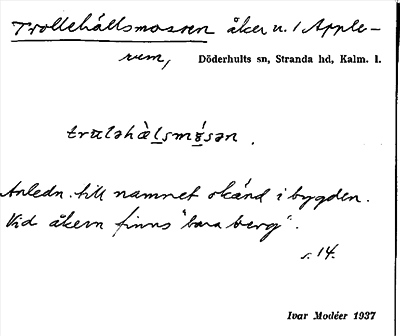 Trollehålsmossen åker u. / Apple-
rum, Döderhults sn, Stranda hd, Kalm. l.
trʉləhὰlsmɤ́sən.
Anledn. till namnet okänd i bygden.
Vid åkern finns "bara berg".
s. 14.
Ivar Modéer 1937